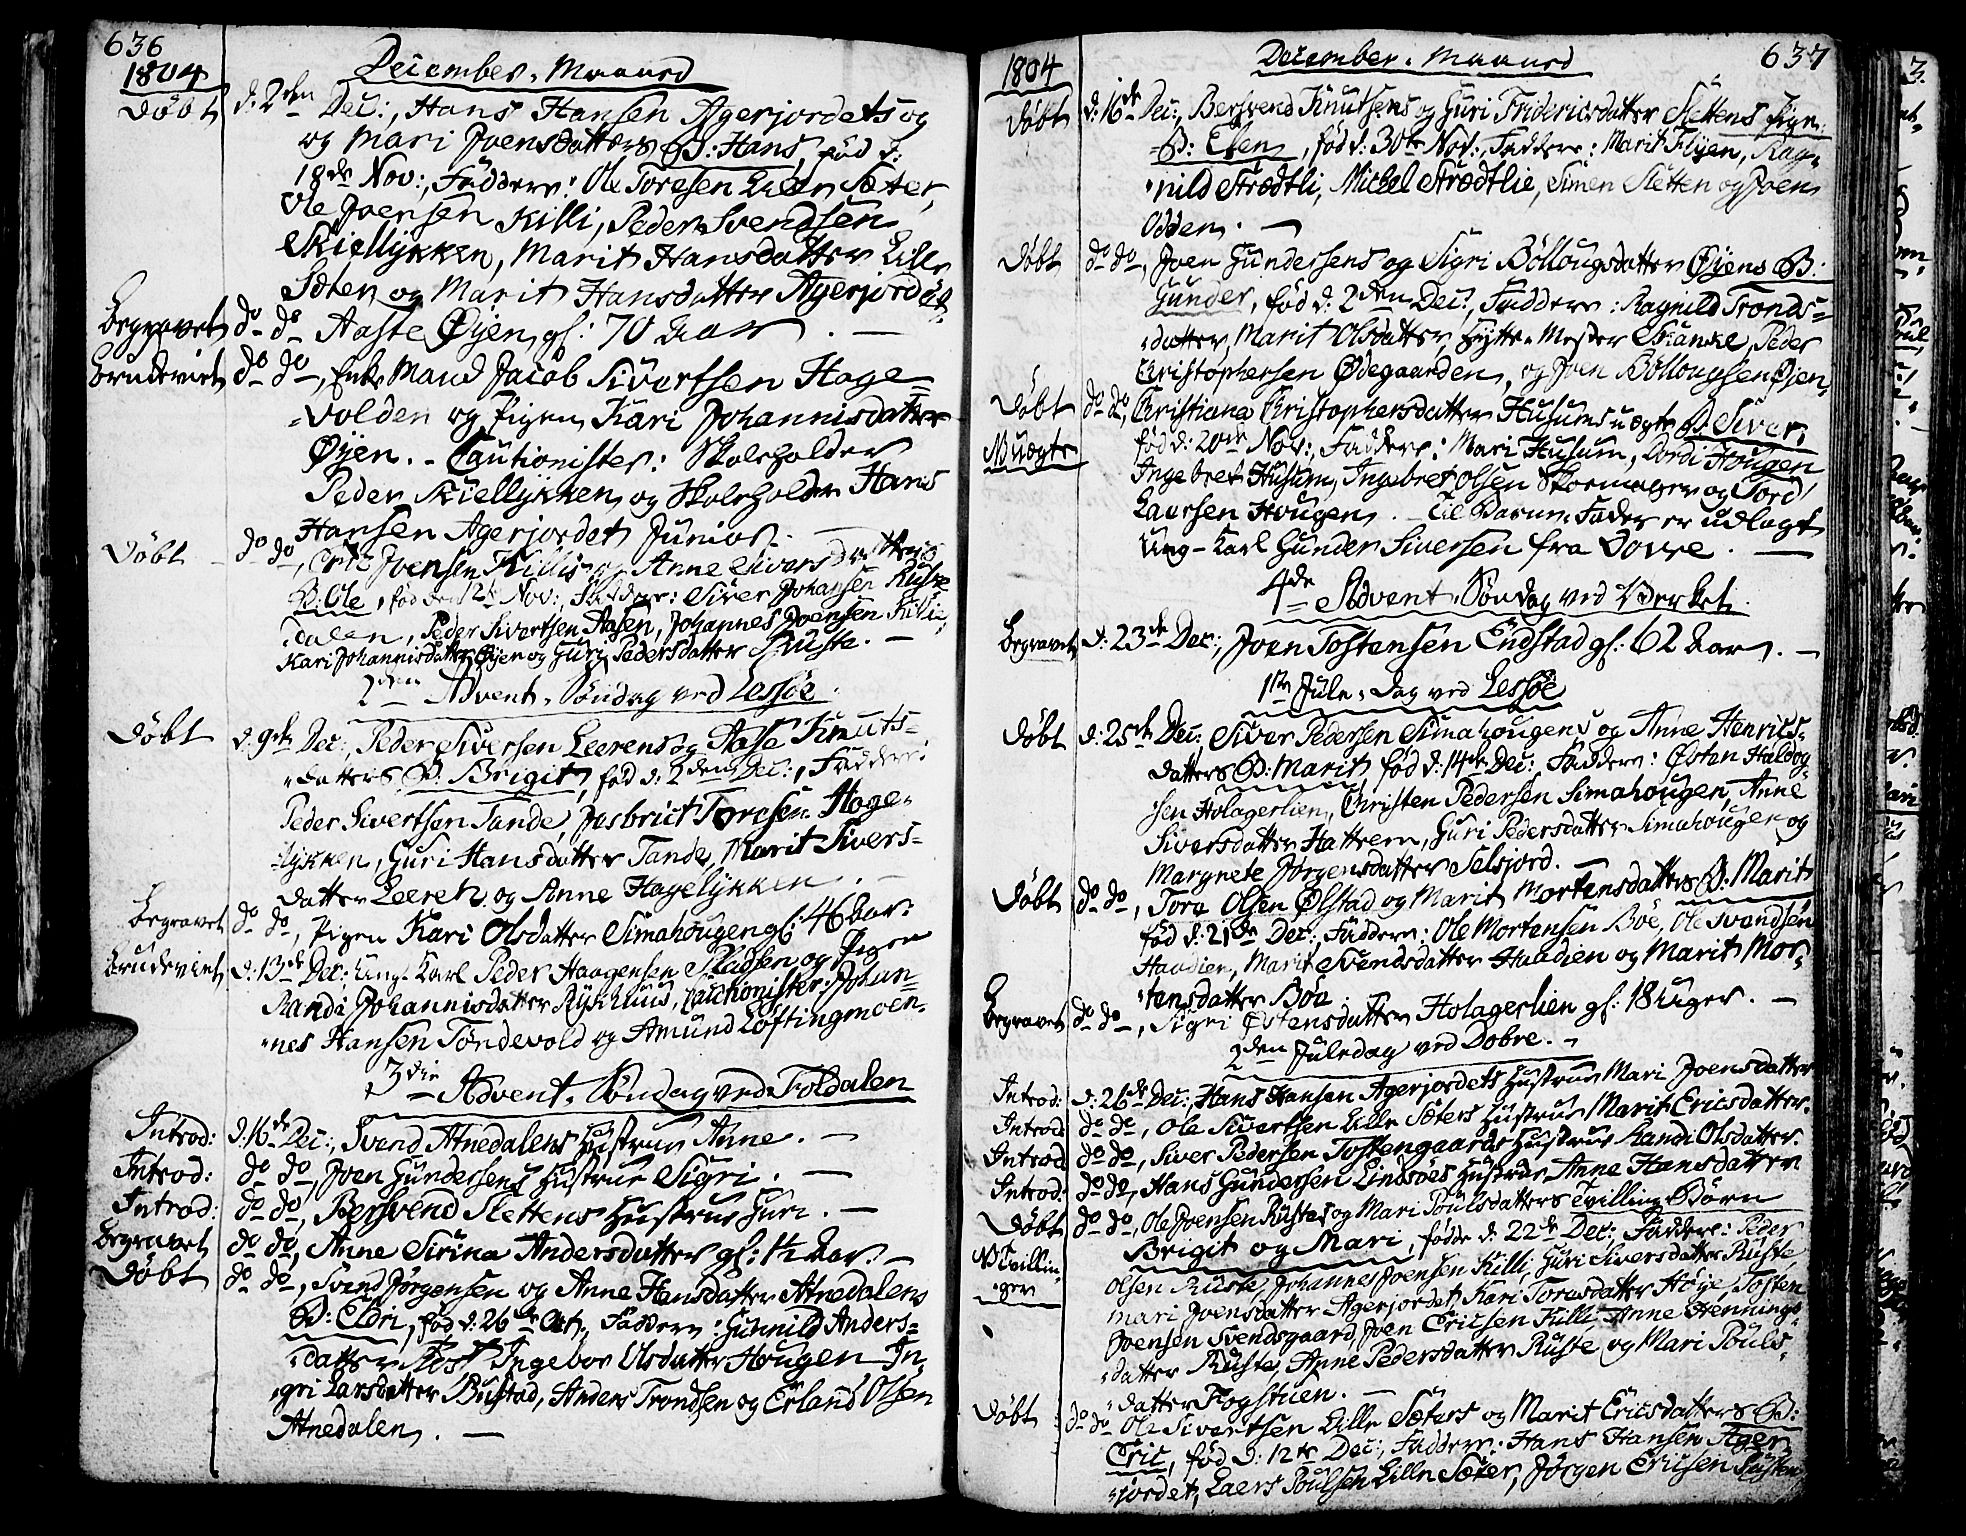 636
1804
December-Maaned
Döbt d: 2den Dec:, Hans Hansen Agerjordets og
og Mari Joensdatters B: Hans, född d:
18de Nov:, Faddere: Ole Toresen Lille Sæter,
Ole Joensen Killi, Peder Svendsen
Skiellykken, Marit Hansdatter Lille
Sæter, og Marit Hansdatter Agerjordet.
Begravet do do Aaste Øyen, gl: 70 Aar. —
Brudeviet do do, Enke Mand Jacob Sivertsen Hage=
=volden og Pigen Kari Johannisdatter
Øyen. - Cautionister: Skoleholder
Peder Skiellykken, og Skoleholder Hans
Hansen Agerjordet Junior.
Döbt do do, Joensen Killis og Anne Siversdatters
B: Ole, föd den Nov:, Faddere: Siver Johansen
dalen, Peder Sivertsen Aasen, Johannes Joensen Killi,
Kari Johannisdatter Øyen og Guri Pedersdatter Ruste. —
2den Advent-Söndag ved Lessöe.
Döbt d: 9de Dec:, Peder Siversen Leerens og Aase Knuts=
=datters B: Brigit, föd d: 2den Dec:, Faddere:
Peder Sivertsen Tande, Toresen Hage=
=lykken, Guri Hansdatter Tande, Marit Sivers=
datter Leeren og Anne Hagelykken. —
Begravet do do, Pigen Kari Olsdatter Simahougen gl: 46 Aar:
Brudeviet d: 13de Dec: Ung-Karl Peder Haagensen Pladsen og Pigen
Randi Johannisdatter, Cautionister: Johan=
=nes Hansen Tondevold og Amund Löftingmoen.
3die Advent-Söndag ved Foldalen
Introd: d: 16de Dec:, Svend Atnedalens Hustrue Anne. —
Introd: do do, Joen Gundersens Hustrue Sigri. —
Introd: do do, Bersvend Slettens Hustrue Guri. —
Begravet do do, Anne Sirina Andersdatter gl: 1½ Aar. —
Döbt do do, Svend Jörgensen og Anne Hansdatter Atnedalens
B: Eldri, föd d: 26de Oct:, Faddere: Gunnild Anders=
=datter, Ingebor Olsdatter Hougen, In=
=gri Larsdatter Bustad, Anders Trondsen og Erland Olsen
Atnedalen. —
637
1804
December-Maaned
Döbt d: 16de Dec:, Bersvend Knutsens og Guri Fridericsdatter Slettens Pige-
B: Elen, föd d: 30te Nov:, Faddere: Marit Flyen, Rag=
=nild Strödtli, Michel Strödtlie, Simen Sletten og Joen
Odden. —
Döbt do do, Joen Gundersens og Sigri Böllougsdatter Øyens B:
Gunder, föd d: 2den Dec:, Faddere: Ragnild Tronds=
=datter, Marit Olsdatter, Hytte-Mester, Peder
Christophersen Ødegaarden, og Joen Böllougsen Øyen.
Döbt do do, Christiana Christophersdatter Husums uægte B: Siver,
N: Uægte föd d: 20de Nov:, Faddere: Mari Husum, Dordi Hougen
Ingebret Husum, Ingebret Olsen Skoemager og Tord
Laursen Hougen. — Til Barne-Fader er udlagt
Ung-Karl Gunder Siversen fra Dovre. —
4de Advent-Söndag ved Værket.
Begravet d: 23de Dec:, Joen Tostensen Endstad gl: 62 Aar. —
1ste Jule-Dag ved Lessöe
Döbt d: 25de Dec:, Siver Pedersen Simahougens og Anne Henrics=
datters B: Marit, föd d: 14de Dec: Faddere: Østen Haldog=
=sen Holagerlien, Christen Pedersen Simahougen, Anne
Siversdatter Hattrem, Guri Pedersdatter Simahougen og
Margrete Jörgensdatter Selsjord. —
Döbt do do, Tore Olsen Ølstad og Marit Mortensdatters B: Marit
föd d: 21de Dec:, Faddere: Ole Mortensen Böe, Ole Svendsen
Haadien, Marit Svendsdatter Haadien og Marit Mor=
=tensdatter Böe.
Begravet do do, Sigri Østensdatter Holagerlien gl: 18 Uger. —
2den Juledag ved Dobre. —
Introd: d: 26de Dec:, Hans Hansen Agerjordets Hustrue Mari Joensdatter
Introd do do, Ole Sivertsen Lille Sæters Hustrue Marit Ericsdatter.
Introd do do, Siver Pedersen Tostengaards Hustrue Randi Olsdatter.
Introd: do do, Hans Gundersen Lindsöes Hustrue Anne Hansdatter
Döbt do do, Ole Joensen Rustes og Mari Poulsdatters Tvilling-Börn
N: Tvillin=
=ger Brigit og Mari, födde d: 22de Dec:, Faddere: Peder
Olsen Ruste, Johannes Joensen Killi, Guri Siversdatter Ruste,
Mari Joensdatter Agerjordet, Kari Toresdatter Höje, Tosten
Joensen Svendsgaard, Joen Ericsen Killi, Anne Hennings=
=datter Ruste, Anne Pedersdatter Ruste og Mari Pouls=
=datter Kogstuen. —
Döbt do do Ole Sivertsen Lille Sæters og Marit Ericsdatters B:
Eric, föd d: 12te Dec:, Faddere: Hans Hansen Ager=
=jordet, Laers Poulsen Lille Sæter, Jörgen Ericsen